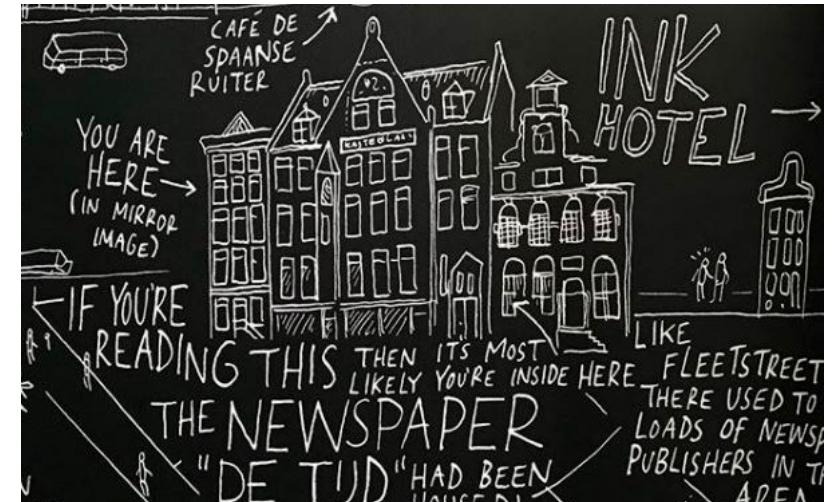 CAFÉ DE
SPAANSE
RUITER
INK
HOTEL
YOU ARE
HERE
(IN MIRROR
IMAGE)
IF YOU'RE
READING THIS THEN IT'S MOST
LIKELY YOU'RE INSIDE HERE
THE NEWSPAPER
"DE TIJD" HAD BEEN
LIKE
FLEETSTREET
THERE USED TO
LOADS OF
PUBLISHERS IN
AREA